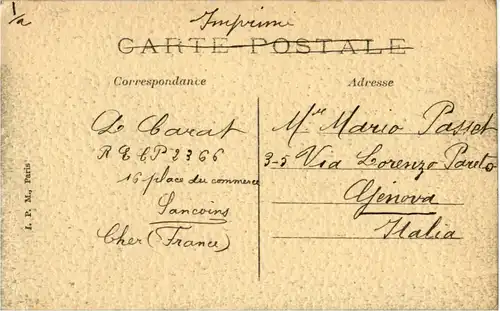 1/a
Imprimé
CARTE POSTALE
Correspondance
Adresse
L Carat
R E C P 2366
16 place du commerce
Sancoins
Cher (France)
Mr Mario Passet
3-5 Via Lorenzo Pareto
Génova
Italia
I. P. M., Paris